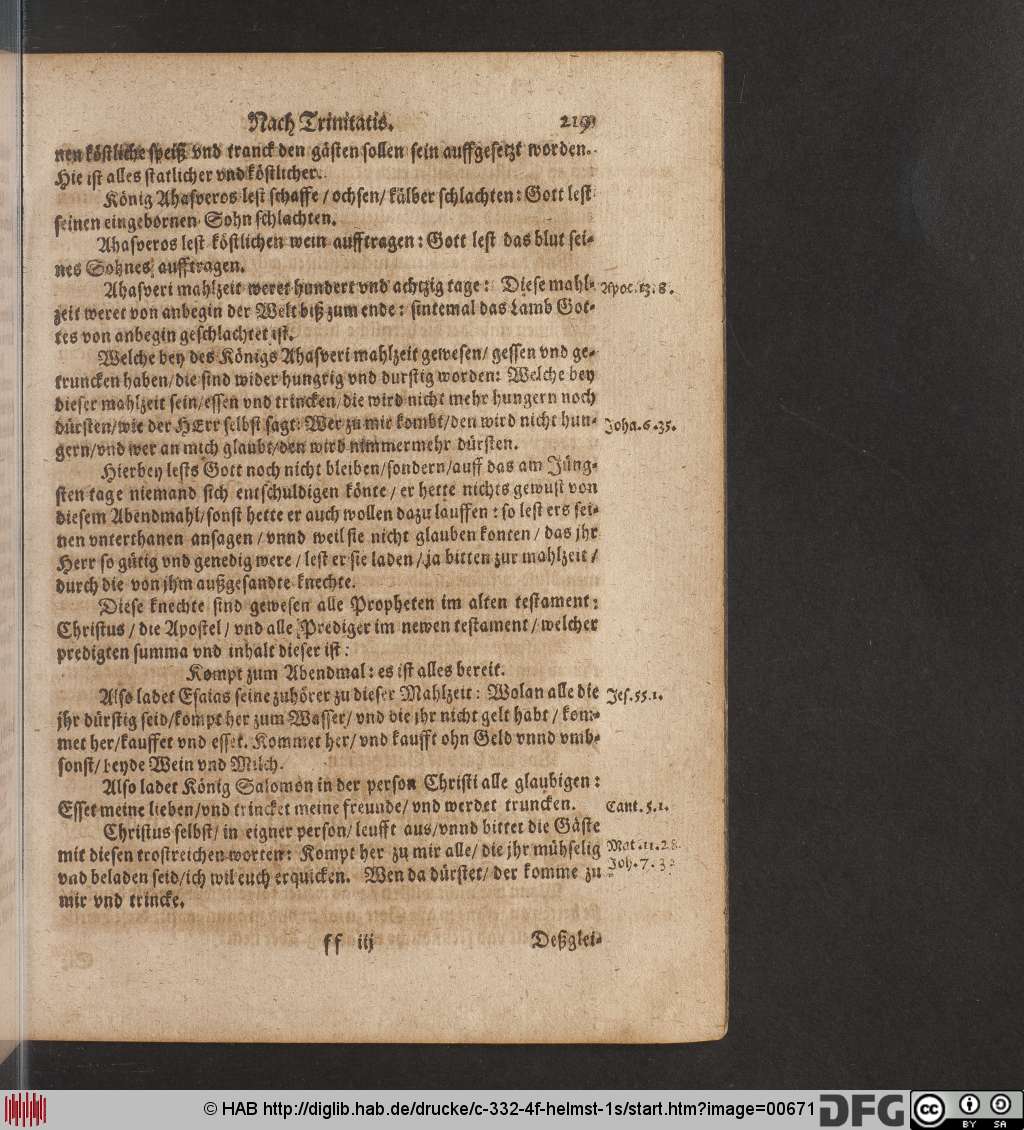 Nach Trinitatis. 219
nen köstliche speiß vnd tranck den gästen sollen sein auffgesetzt worden.
Hie ist alles statlicher vnd köstlicher.
König Ahasveros lest schaffe / ochsen/ kälber schlachten: Gott lest
seinen eingebornen Sohn schlachten.
Ahasveros lest köstlichen wein aufftragen: Gott lest das blut sei-
nes Sohnes aufftragen.
Ahasveri mahlzeit weret hundert vnd achtzig tage: Diese mahl- Apoc. 13. 8.
zeit weret von anbegin der Welt biß zum ende: sintemal das Lamb Got-
tes von anbegin geschlachtet ist.
Welche bey des Königs Ahasveri mahlzeit gewesen/ gessen vnd ge-
truncken haben/die sind wider hungrig vnd durstig worden: Welche bey
dieser mahlzeit sein/essen vnd trincken/die wird nicht mehr hungern noch
dürsten/wie der HErr selbst sagt: Wer zu mir kombt/den wird nicht hun- Joha. 6. 35.
gern/vnd wer an mich glaubt/den wird nimmermehr dürsten.
Hierbey lests Gott noch nicht bleiben/sondern/auff das am Jüng-
sten tage niemand sich entschuldigen könte / er hette nichts gewust von
diesem Abendmahl/sonst hette er auch wollen dazu lauffen: so lest ers sei-
nen vnterthanen ansagen / vnnd weil sie nicht glauben konten / das jhr
Herr so gütig vnd genedig were / lest er sie laden / ja bitten zur mahlzeit /
durch die von jhm außgesandte knechte.
Diese knechte sind gewesen alle Propheten im alten testament:
Christus / die Apostel / vnd alle Prediger im newen testament / welcher
predigten summa vnd inhalt dieser ist:
Kompt zum Abendmal: es ist alles bereit.
Also ladet Esaias seine zuhörer zu dieser Mahlzeit: Wolan alle die Jes. 55. 1.
jhr dürstig seid/kompt her zum Wasser/ vnd die jhr nicht gelt habt / kom-
met her/kauffet vnd esset. Kommet her/ vnd kaufft ohn Geld vnnd vmb-
sonst/ beyde Wein vnd Milch.
Also ladet König Salomon in der person Christi alle glaubigen:
Esset meine lieben/vnd trincket meine freunde/ vnd werdet truncken. Cant. 5. 1.
Christus selbst/ in eigner person/ leufft aus/vnnd bittet die Gäste
mit diesen trostreichen worten: Kompt her zu mir alle/ die jhr mühselig Mat. 11. 28.
vnd beladen seid/ich wil euch erquicken. Wen da dürstet/ der komme zu Joh. 7.
mir vnd trincke.
ff iij Deßglei-
© HAB http://diglib.hab.de/drucke/c-332-4f-helmst-1s/start.htm?image=00671 DFG cc BY SA